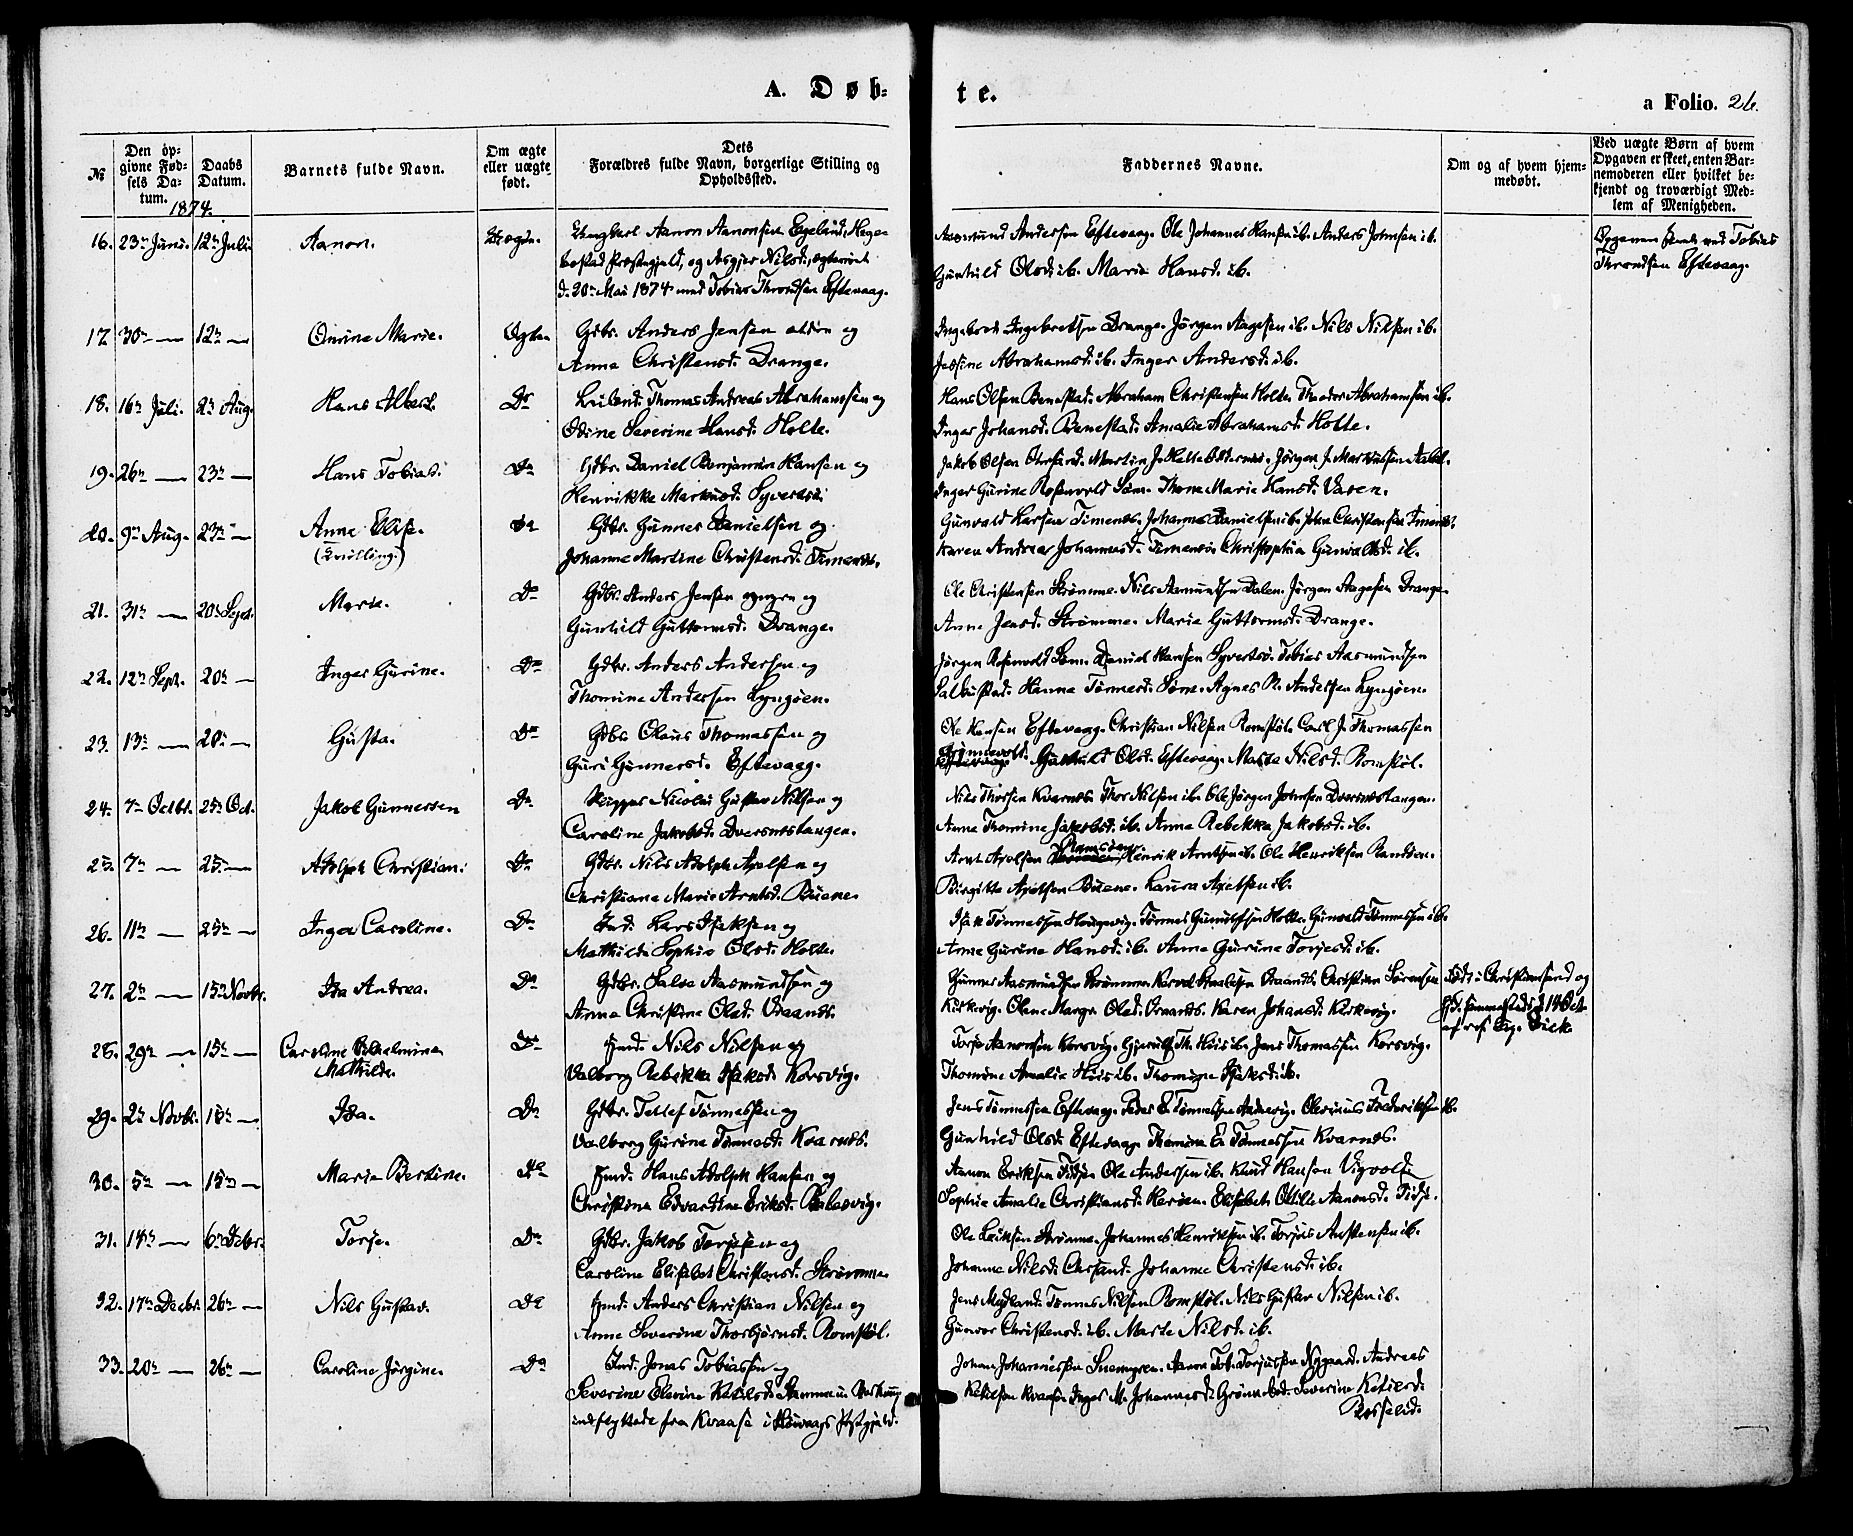 A. Døb-
te.
a Folio. 26.
№
Den op-
givne Fød-
sels Da-
tum.
1874.
Daabs
Datum.
Barnets fulde Navn.
Om ægte
eller uægte
født.
Dets
Forældres fulde Navn, borgerlige Stilling og
Opholdssted.
Faddernes Navne.
Om og af hvem hjem-
medøbt.
Ved uægte Børn af hvem
Opgaven er skeet, enten Bar-
nemoderen eller hvilket be-
kjendt og troværdigt Med-
lem af Menigheden.
16. 23de Juni. 12te Juli. Aanon. Uægte. Ungkarl Aanon Aanonsen Egeland, Hege-
bostad Præstegjeld, og Asgjer Nilsd.,
d. 20de Mai 1874 med Tobias Throndsen Eftevaag.
Aasmund Andersen Eftevaag. Ole Johannes Hansen ib. Anders Johnsen ib.
Gunhild Olsd. ib. Marie Hansd. ib.
Opgaven skeet ved Tobias
Throndsen Eftevaag.
17. 30te — 12te — Marie. Ægte. Gdbr. Anders Jensen ældre og
Anna Christensd. Drange.
Ingebret Ingebretsen Drange. Jörgen Aagesen ib. Nils Nilsen ib.
Jessine Abrahamsd. ib. Inger Andersd. ib.
18. 16de Juli. 2den Aug. Hans Albert. Do Thomas Andreas Abrahamsen og
Odine Severine Hansd. Holte.
Hans Olsen Benestad. Abraham Christensen Holte. Theodor Abrahamsen ib.
Inger Johansd. Benestad. Amalie Abrahamsd. Holte.
19. 26de — 23de — Hans Tobias. Do Gdbr. Daniel Benjamin Hansen og
Henrikke Markusd. Syvertsö.
Jakob Olsen Martin J. Holte Jörgen J. Markussen
Inger Gurine Rosenvold Söm. Thone Marie Hansd. Vasen.
20. 9de Aug. 23de — Anne Elise. Do Gdbr. Gunner Danielsen og
(Tvilling.)
Johanne Martine Christensd. Timenes.
Gunvald Larsen Timenes. Johannes Danielsen ib. John Christensen Timenes.
Karen Andrea Johannesd. Timenes. Christophia Gunvaldsd. ib.
21. 31te — 20de Sept. Marie. Do Gdbr. Anders Jensen yngre og
Gunhild Guttormsd. Drange.
Ole Christensen Strömme. Nils Aamundsen Dalen. Jörgen Aagesen Drange.
Anne Jensd. Strömme. Marie Guttormsd. Drange.
22. 12te Sept. 20de — Inger Gurine. Do Gdbr. Anders Andersen og
Thomine Andersen Lyngöen.
Jörgen Rosenvold Söm. Daniel Hansen Syvertsö. Tobias Aasmundsen
Salbustad. Hanna Tönnesd. Söm. Agnes N. Andersen Lyngöen.
23. 13de — 20de — Gusta. Do Gdbr. Olaus Thomassen og
Guri Gunnersd. Eftevaag.
Ole Hansen Eftevaag. Christian Nilsen Romstöl. Carl J. Thomassen
Grönnevold. Gunhild Olsd. Eftevaag. Marte Nilsd. Romstöl.
24. 7de Octbr. 25de Oct. Jakob Gunnersen Do Skipper Nicolai Gustav Nilsen og
Caroline Jakobsd. Dversnestangen.
Nils Thorsen Kvarnes. Thor Nilsen ib. Ole Jörgen Johnsen Dversnestangen.
Anne Thomine Jakobsd. ib. Anne Rebekka Jakobsd. ib.
25. 7de — 25de — Adolph Christian. Do Gdbr. Nils Adolph Axelsen og
Christiane Marie Arntsd. Buene.
Arnt Axelsen Henrik Arntsen ib. Ole Henriksen Randöen.
Birgitte Axelsen Buene. Laura Axelsen ib.
26. 11te — 25de — Inger Caroline. Do Ind. Lars Isaksen og
Mathilde Sophie Olsd. Holte.
Isak Tönnessen Haugevig. Tönnes Gundersen Holte. Gunvald Tönnessen ib.
Anne Gurine Hansd. ib. Anne Gurine Torjesd. ib.
27. 2den — 15de Novbr. Ida Andrea. Do Gdbr. Salve Aasmundsen og
Anna Christine Olsd. Odraands.
Gunner Aasmundsen Strömme. Christian Sörensen
Kirkevig. Olene Margr. Olsd. Karen Johansd. Kirkevig.
Födt i Christiansand og
14 Oct.
28. 29de — 15de — Caroline Vilhelmine
Mathilde.
Do Ind. Nils Nilsen og
Valborg Rebekka Isaksd. Korsvig.
Torje Aanonsen Korsvig. Th. Höis ib. Jens Thomassen Korsvig.
Thomine Amalie Höis ib. Thomine Isaksd. ib.
29. 2den Novbr. 15de — Ida. Do Gdbr. Tellef Tönnessen og
Valborg Gurine Tönnesd. Kvarnes.
Jens Tönnessen Eftevaag. Peder E. Tönnessen Olerinus Frederiksen ib.
Gunhild Olsd. Eftevaag. Thomine E. Tönnessen Kvarnes.
30. 5te — 15de — Marie Bertine. Do Ind. Hans Adolph Hansen og
Christine Edvardine Eriksd.
Aanon Eriksen Tidsö. Ole Andersen ib. Knud Hansen Vigvold.
Sophie Amalie Christiansd. Elisabet Otilie Aanonsd. Tidsö.
31. 14de — 6te Decbr. Torje. Do Gdbr. Jakob Torjesen og
Caroline Elisabet Christensd. Strömme.
Ole Eriksen Strömme. Johannes Henriksen ib. Torjus Anstensen ib.
Johanne Nilsd. Johanne Christensd. ib.
32. 17de Decbr. 26de — Nils Gustav. Do Ind. Anders Christian Nilsen og
Anne Severine Thorbjörnsd. Romstöl.
Jens Mydland. Tönnes Nilsen Romstöl. Nils Gustav Nilsen ib.
Gunvor Christensd. ib. Marte Nilsd. ib.
33. 20de — 26de — Caroline Jörgine. Do Ind. Jonas Tobiassen og
Severine Elevine Ketilsd.
indflyttede fra Kvaase i Hövaags Præstgjeld.
Johan Johannessen Aanon Tob. Torjussen Nygaard. Andreas
Ketilsen Kvaase. Inger M. Johannesd. Severine Ketilsd.
Rosselid.